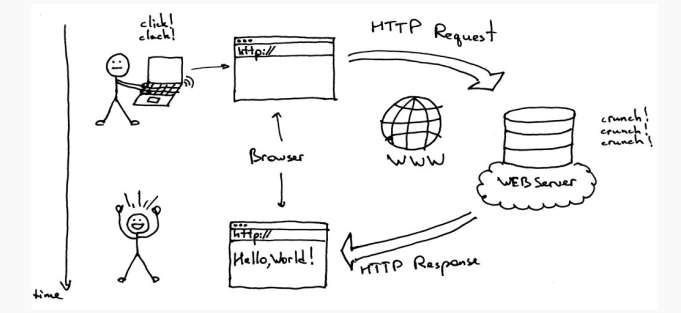 click!
clack!
http://
HTTP Request
WWW
crunch!
crunch!
crunch!
WEB Server
Browser
http://
Hello, World!
HTTP Response
time